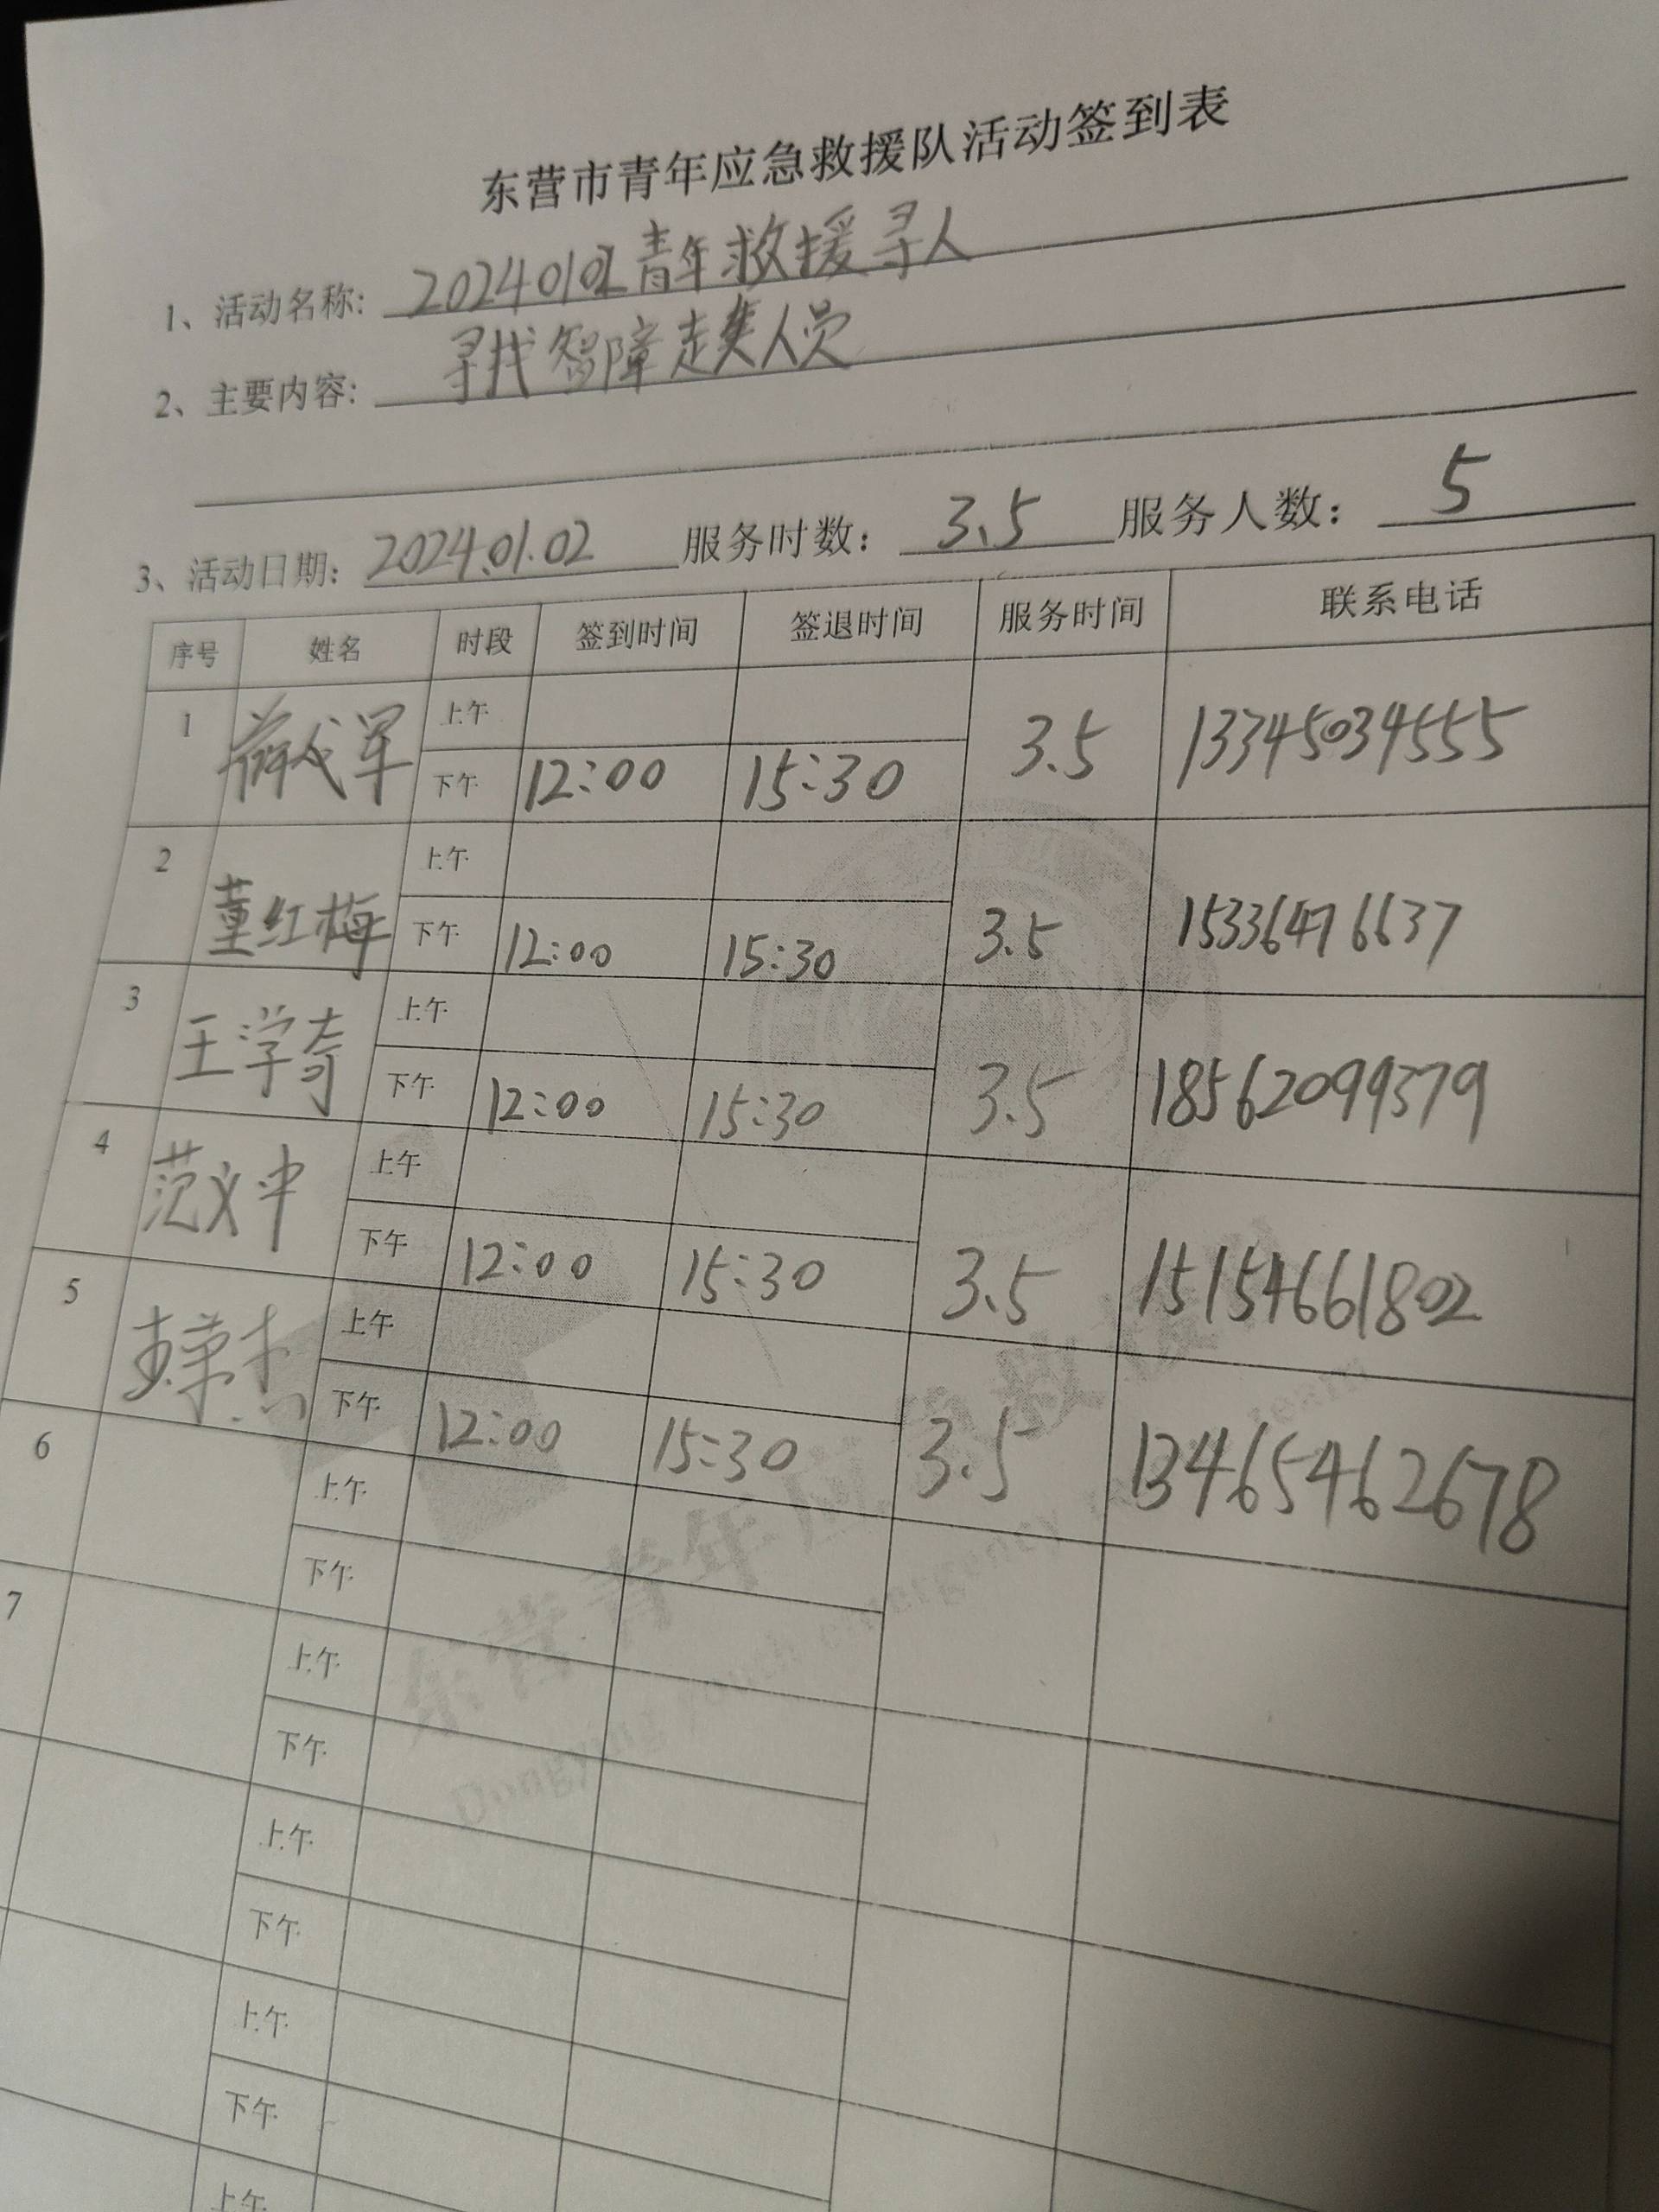 东营市青年应急救援队活动签到表
1、活动名称: 20240102青年救援寻人
2、主要内容: 寻找智障走失人员
3、活动日期: 2024.01.02 服务时数: 3.5 服务人数: 5
序号 姓名 时段 签到时间 签退时间 服务时间 联系电话
1 军 上午
下午 12:00 15:30 3.5 13345034555
2 董红梅 上午
下午 12:00 15:30 3.5 15336476637
3 王学奇 上午
下午 12:00 15:30 3.5 18562099379
4 范义中 上午
下午 12:00 15:30 3.5 15154661802
5 上午
下午 12:00 15:30 3.5 13465462678
6 上午
下午
7 上午
下午
上午
下午
上午
下午
上午
东营青年应急救援
Dongying youth emergency team